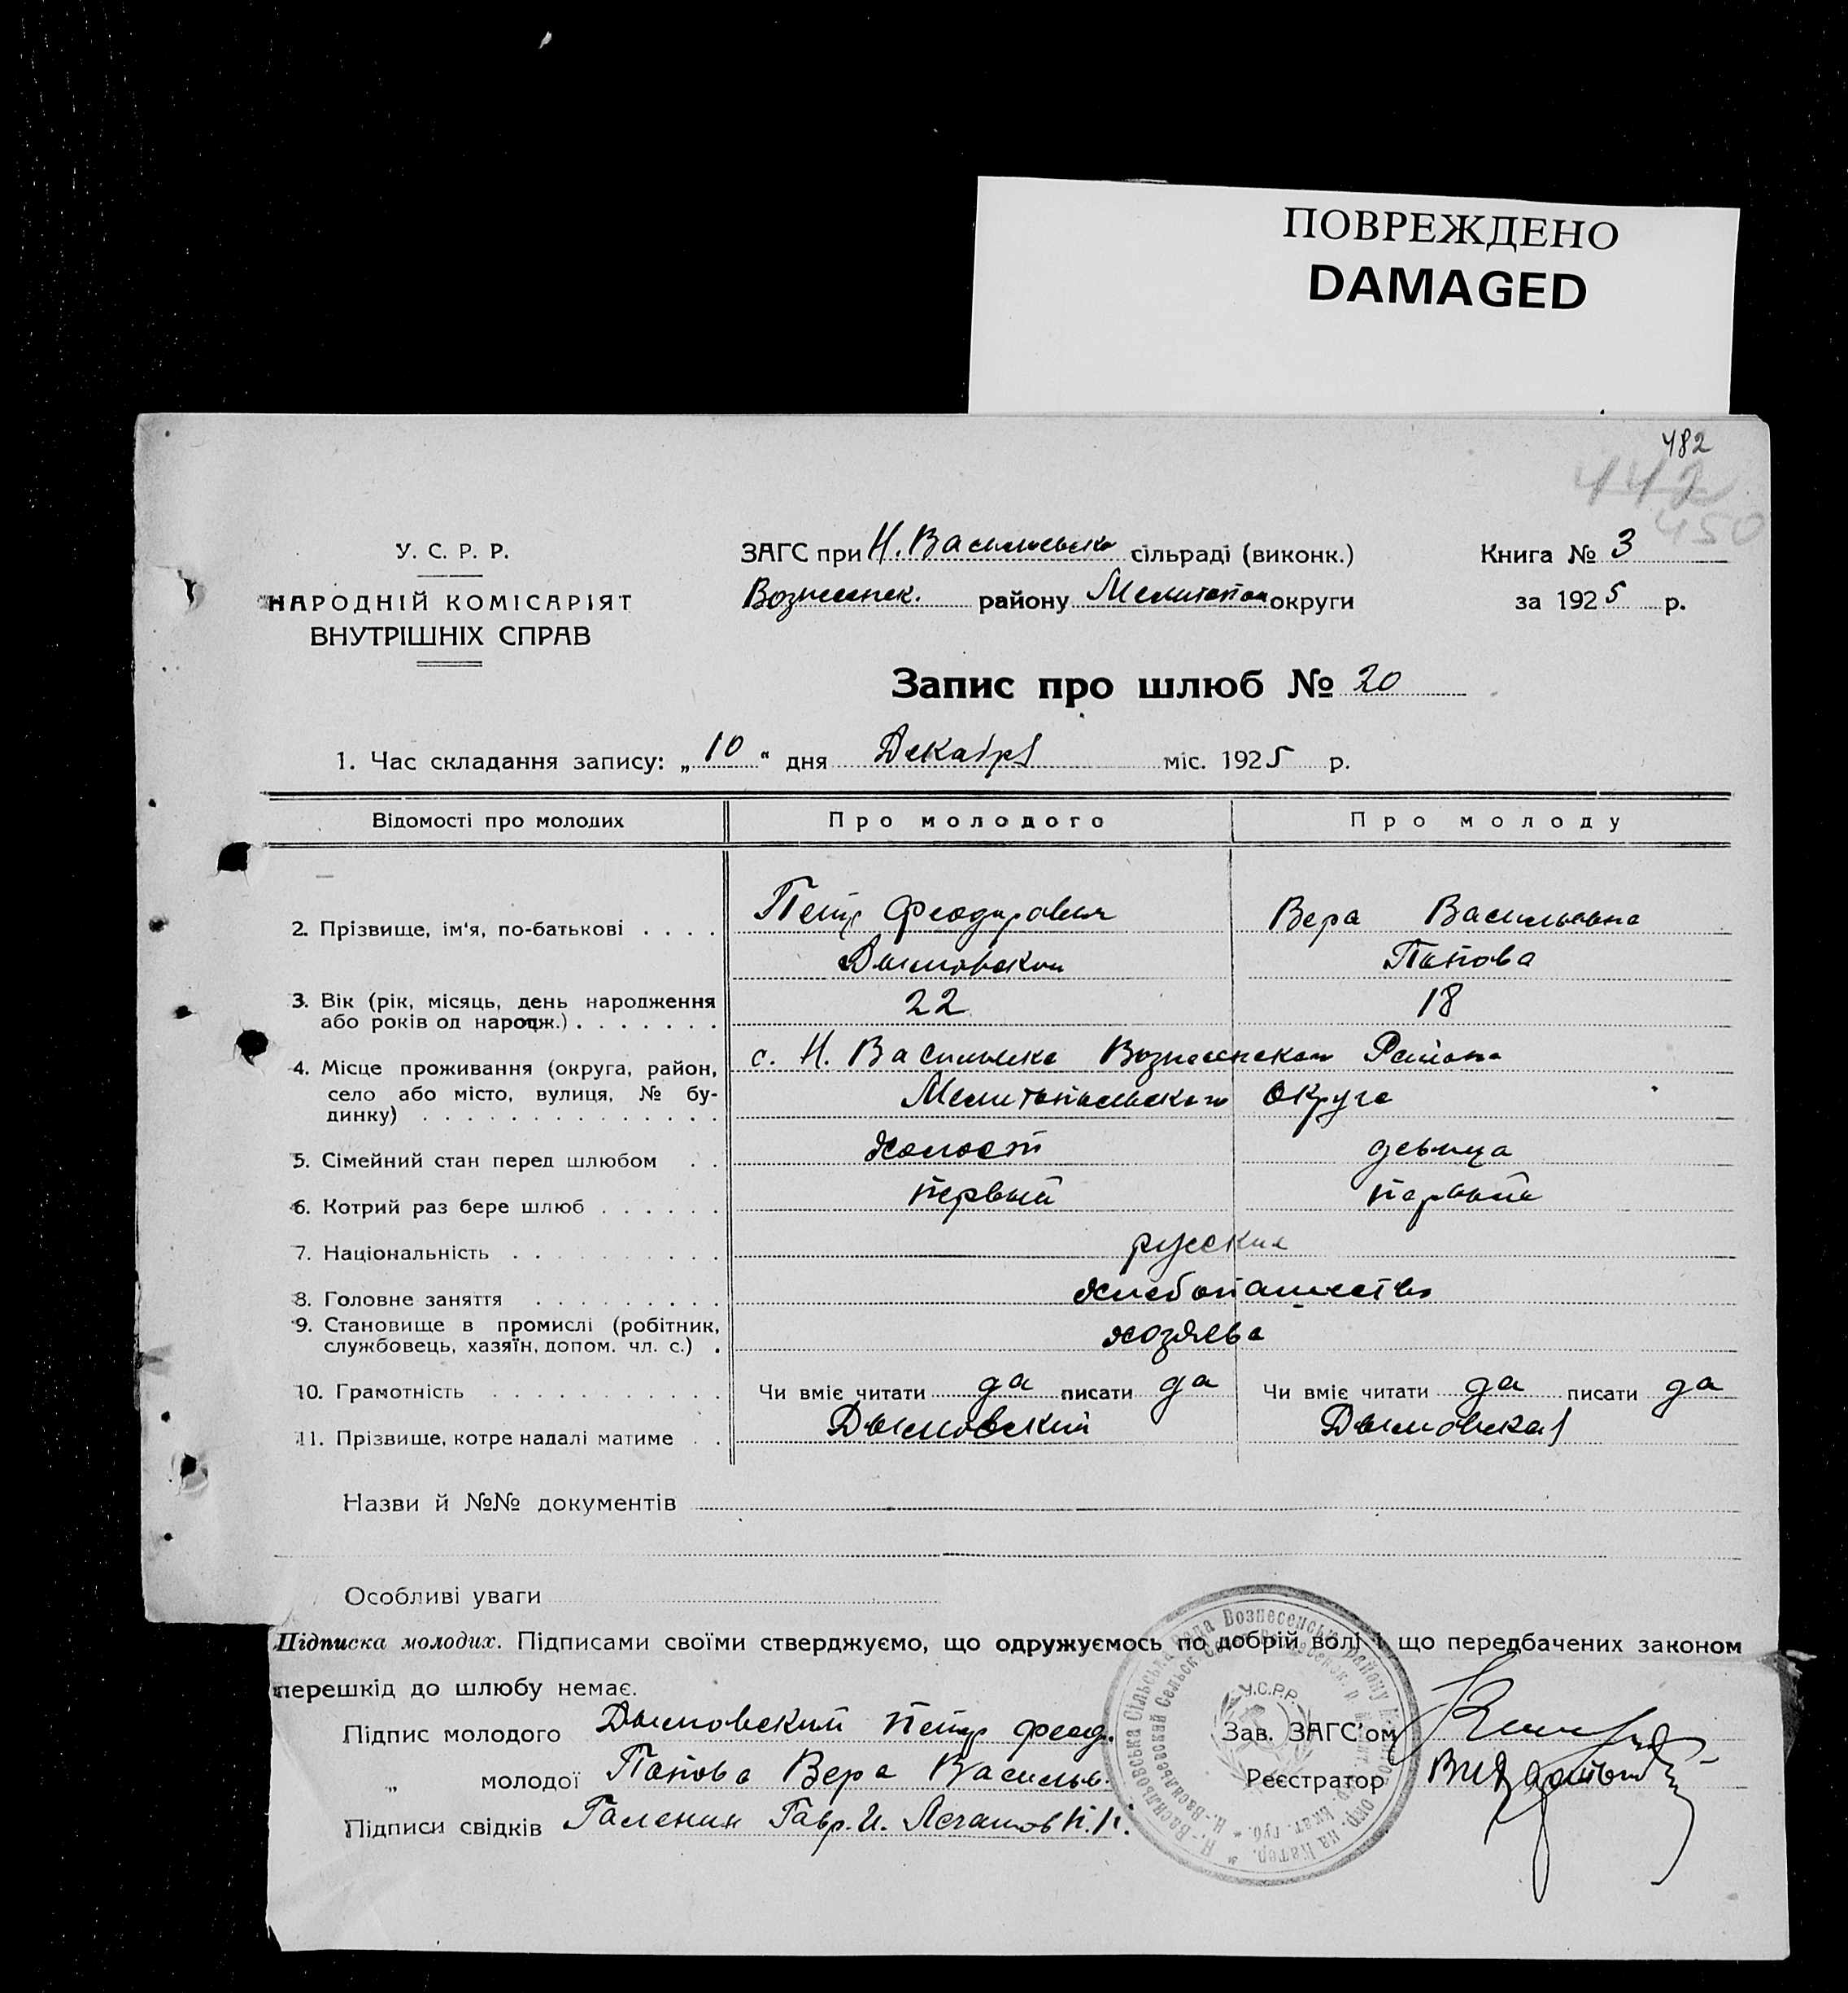 ПОВРЕЖДЕНО
DAMAGED
482
442
450
У. С. Р. Р.
НАРОДНІЙ КОМІСАРІЯТ
ВНУТРІШНІХ СПРАВ
ЗАГС при Н. Васильевско сільраді (виконк.)
Вознесенск. району Мелитопол округи
Книга № 3
за 1925 р.
Запис про шлюб № 20
1. Час складання запису: „10“ дня Декабря міс. 1925 р.
Відомості про молодих Про молодого Про молоду
2. Прізвище, ім'я, по-батькові . . . . Петр Феодорович Вера Васильевна
Дымовский Попова
3. Вік (рік, місяць, день народження або років од народж.) . . . . . . . 22 18
4. Місце проживання (округа, район, село або місто, вулиця, № будинку) . . . . . . . . . . . . . с. Н. Васильевка Вознесенского Района
Мелитопольского Округа
5. Сімейний стан перед шлюбом . . холост девица
6. Котрий раз бере шлюб . . . . . . первый первый
7. Національність . . . . . . . . . . русские
8. Головне заняття . . . . . . . . . хлебопашество
9. Становище в промислі (робітник, службовець, хазяїн, допом. чл. с.) . хозяева
10. Грамотність . . . . . . . . . . . Чи вміє читати да писати да Чи вміє читати да писати да
11. Прізвище, котре надалі матиме . . Дымовский Дымовская
Назви й №№ документів
Особливі уваги
Підписка молодих. Підписами своїми стверджуємо, що одружуємось по добрій волі і що передбачених законом
перешкід до шлюбу немає.
Підпис молодого Дымовский Петр Феод.
„ молодої Попова Вера Васильев.
Підписи свідків Галенин Гавр. И.
Зав. ЗАГС'ом
Реєстратор
У.С.Р.Р.
Н.-Васильовська Сільська Рада Вознесенськ. Району
Н.-Васильевский Сельск. Совет